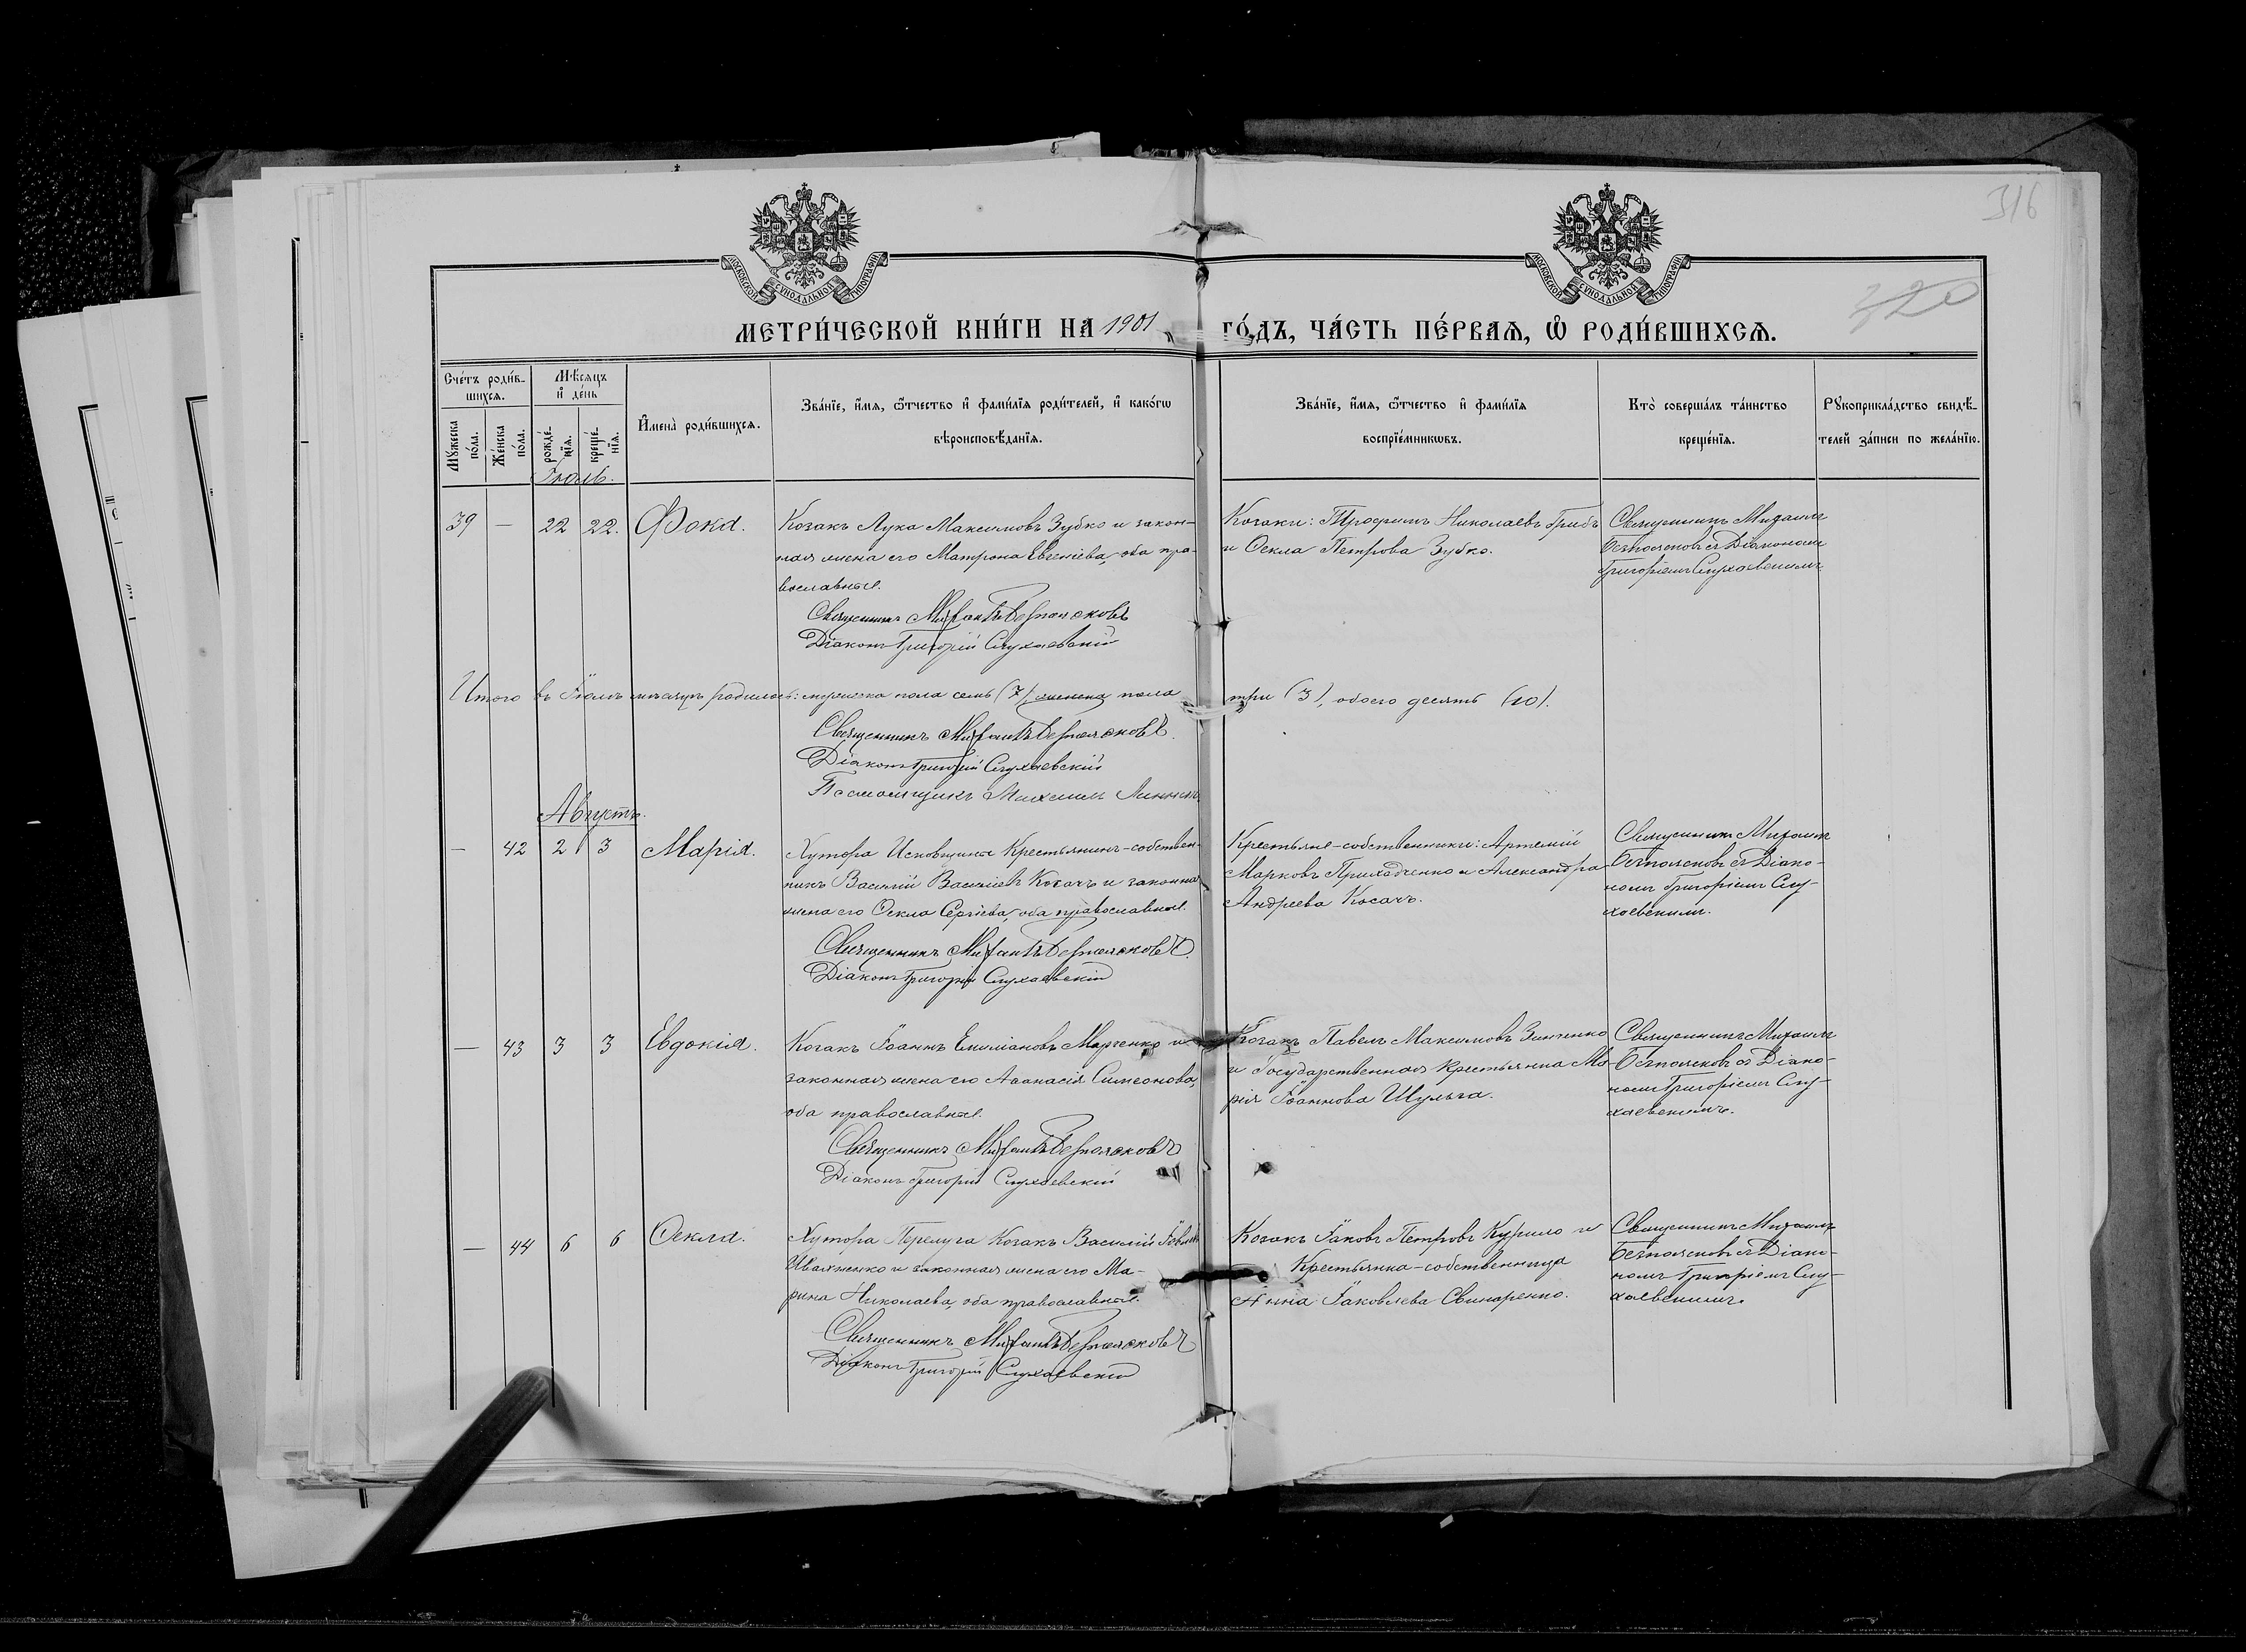 316
320
МОСКОВСКОЙ СѴНОДАЛЬНОЙ ТИПОГРАФІИ
МОСКОВСКОЙ СѴНОДАЛЬНОЙ ТИПОГРАФІИ
МЕТРИ́ЧЕСКОЙ КНИ́ГИ НА 1901 ГО́ДЪ, ЧА́СТЬ ПЕ́РВАѦ, Ѡ҆ РОДИ́ВШИХСѦ.
Сче́тъ роди́в-
шихсѧ.
Мꙋ́жеска по́ла.
Же́нска по́ла.
Мѣ́сѧцъ
и҆ де́нь
рожде́-нїѧ.
креще́-нїѧ.
И҆мена̀ роди́вшихсѧ.
Зва́нїе, и҆́мѧ, ѻ҆́тчество и҆ фами́лїѧ роди́телей, и҆ како́гѡ
вѣроисповѣ́данїѧ.
Зва́нїе, и҆́мѧ, ѻ҆́тчество и҆ фами́лїѧ
воспрїе́мникѡвъ.
Кто̀ соверша́лъ та́инство
креще́нїѧ.
Рꙋкоприкла́дство свидѣ́-
телей за́писи по жела́нїю.
Іюль.
39 — 22 22. Фока.
Козакъ Лука Максимовъ Зубко и закон-
ная жена его Матрона Евсеніева, оба пра-
вославные.
Священникъ Михаилъ Безпоясковъ
Діаконъ Григорій Слухаевскій
Козаки: Трофимъ Николаевъ Грибъ
и Ѳекла Петрова Зубко.
Священникъ Михаилъ
Безпоясковъ съ Діакономъ
Григоріемъ Слухаевскимъ.
Итого въ Іюлѣ мѣсяцѣ родилось: мужеска пола семь (7), женска пола три (3), обоего десять (10).
Священникъ Михаилъ Безпоясковъ.
Діаконъ Григорій Слухаевскій
Михаилъ
Августъ.
— 42 2 3 Марія.
Хутора Крестьянинъ-собствен-
никъ Василій Василіевъ Косачъ и законная
жена его Ѳекла Сергіева, оба православные.
Священникъ Михаилъ Безпоясковъ.
Діаконъ Григорій Слухаевскій
Крестьяне-собственники: Артемій
Марковъ Приходченко и Александра
Андреева Косачъ.
Священникъ Михаилъ
Безпоясковъ съ Діако-
номъ Григоріемъ Слу-
хаевскимъ.
— 43 3 3 Евдокія.
Козакъ Іоаннъ Емиліановъ Марченко и
законная жена его Аѳанасія Симеонова,
оба православные.
Священникъ Михаилъ Безпоясковъ
Діаконъ Григорій Слухаевскій
Козакъ Павелъ Максимовъ Зинченко
и Государственная крестьянка Ма-
рія Іоаннова Шульга.
Священникъ Михаилъ
Безпоясковъ съ Діако-
номъ Григоріемъ Слу-
хаевскимъ.
— 44 6 6 Ѳекла.
Хутора Перелуга Козакъ Василій Іовлевъ
Ивахненко и законная жена его Ма-
рина Николаева, оба православные.
Священникъ Михаилъ Безпоясковъ
Діаконъ Григорій Слухаевскій
Козакъ Іаковъ Петровъ Курило и
Крестьянка-собственница
Анна Іаковлева Свинаренко.
Священникъ Михаилъ
Безпоясковъ съ Діако-
номъ Григоріемъ Слу-
хаевскимъ.